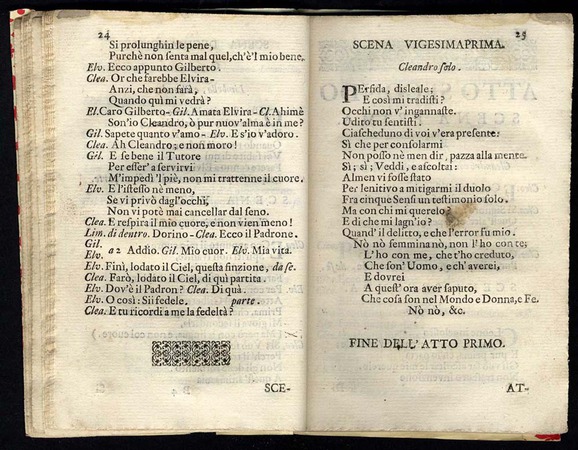 24
Si prolunghin le pene,
Purchè non senta mal quel, ch'è'l mio bene.
Elv. Ecco appunto Gilberto.
Clea. Or che farebbe Elvira-
Anzi, che non farà,
Quando quì mi vedrà?
El. Caro Gilberto- Gil. Amata Elvira- Cl. Ahimè
Son'io Cleandro, ò pur nuov'alma è in me?
Gil. Sapete quanto v'amo- Elv. E s'io v'adoro.
Clea. Ah Cleandro; e non moro!
Gil. E se bene il Tutore
Per esser' a servirvi
M'impedì 'l piè, non mi trattenne il cuore.
Elv. E l'istesso nè meno,
Se vi privò dagl'occhi,
Non vi potè mai cancellar dal seno.
Clea. E respira il mio cuore, e non vien meno!
Lim. di dentro. Dorino- Clea. Ecco il Padrone.
Gil.
Elv. a 2 Addio. Gil. Mio cuor. Elv. Mia vita.
Elv. Finì, lodato il Ciel, questa finzione, da se.
Clea. Farò, lodato il Ciel, di quì partita.
Elv. Dov'è il Padron? Clea. Di quà.
Elv. O così: Sii fedele. parte.
Clea. E tu ricordi a me la fedeltà?
SCE-
25
SCENA VIGESIMAPRIMA.
Cleandro solo.
PErsida, disleale;
E così mi tradisti?
Occhi non v'ingannaste.
Udito tu sentisti.
Ciascheduno di voi v'era presente:
Sì che per consolarmi
Non posso nè men dir, pazza alla mente.
Sì; sì; Veddi, e ascoltai:
Almen vi fosse stato
Per lenitivo a mitigarmi il duolo
Fra cinque Sensi un testimonio solo.
Ma con chi mi querelo?
E di che mi lagn'io?
Quand' il delitto, e che l'error fu mio.
Nò nò femmina nò, non l'ho con te;
L'ho con me, che t'ho creduto,
Che son' Uomo, e ch'averei,
E dovrei
A quest' ora aver saputo,
Che cosa son nel Mondo e Donna, e Fe.
Nò nò, &c.
FINE DELL'ATTO PRIMO.
AT-